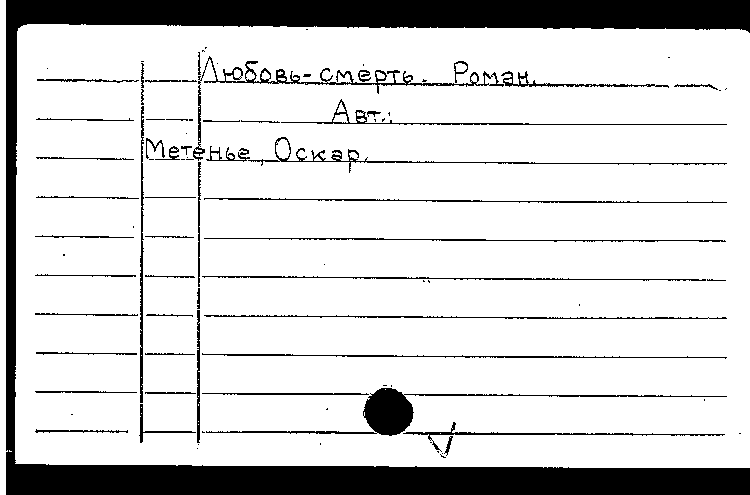 Любовь-смерть. Роман.
Авт.:
Метенье, Оскар.